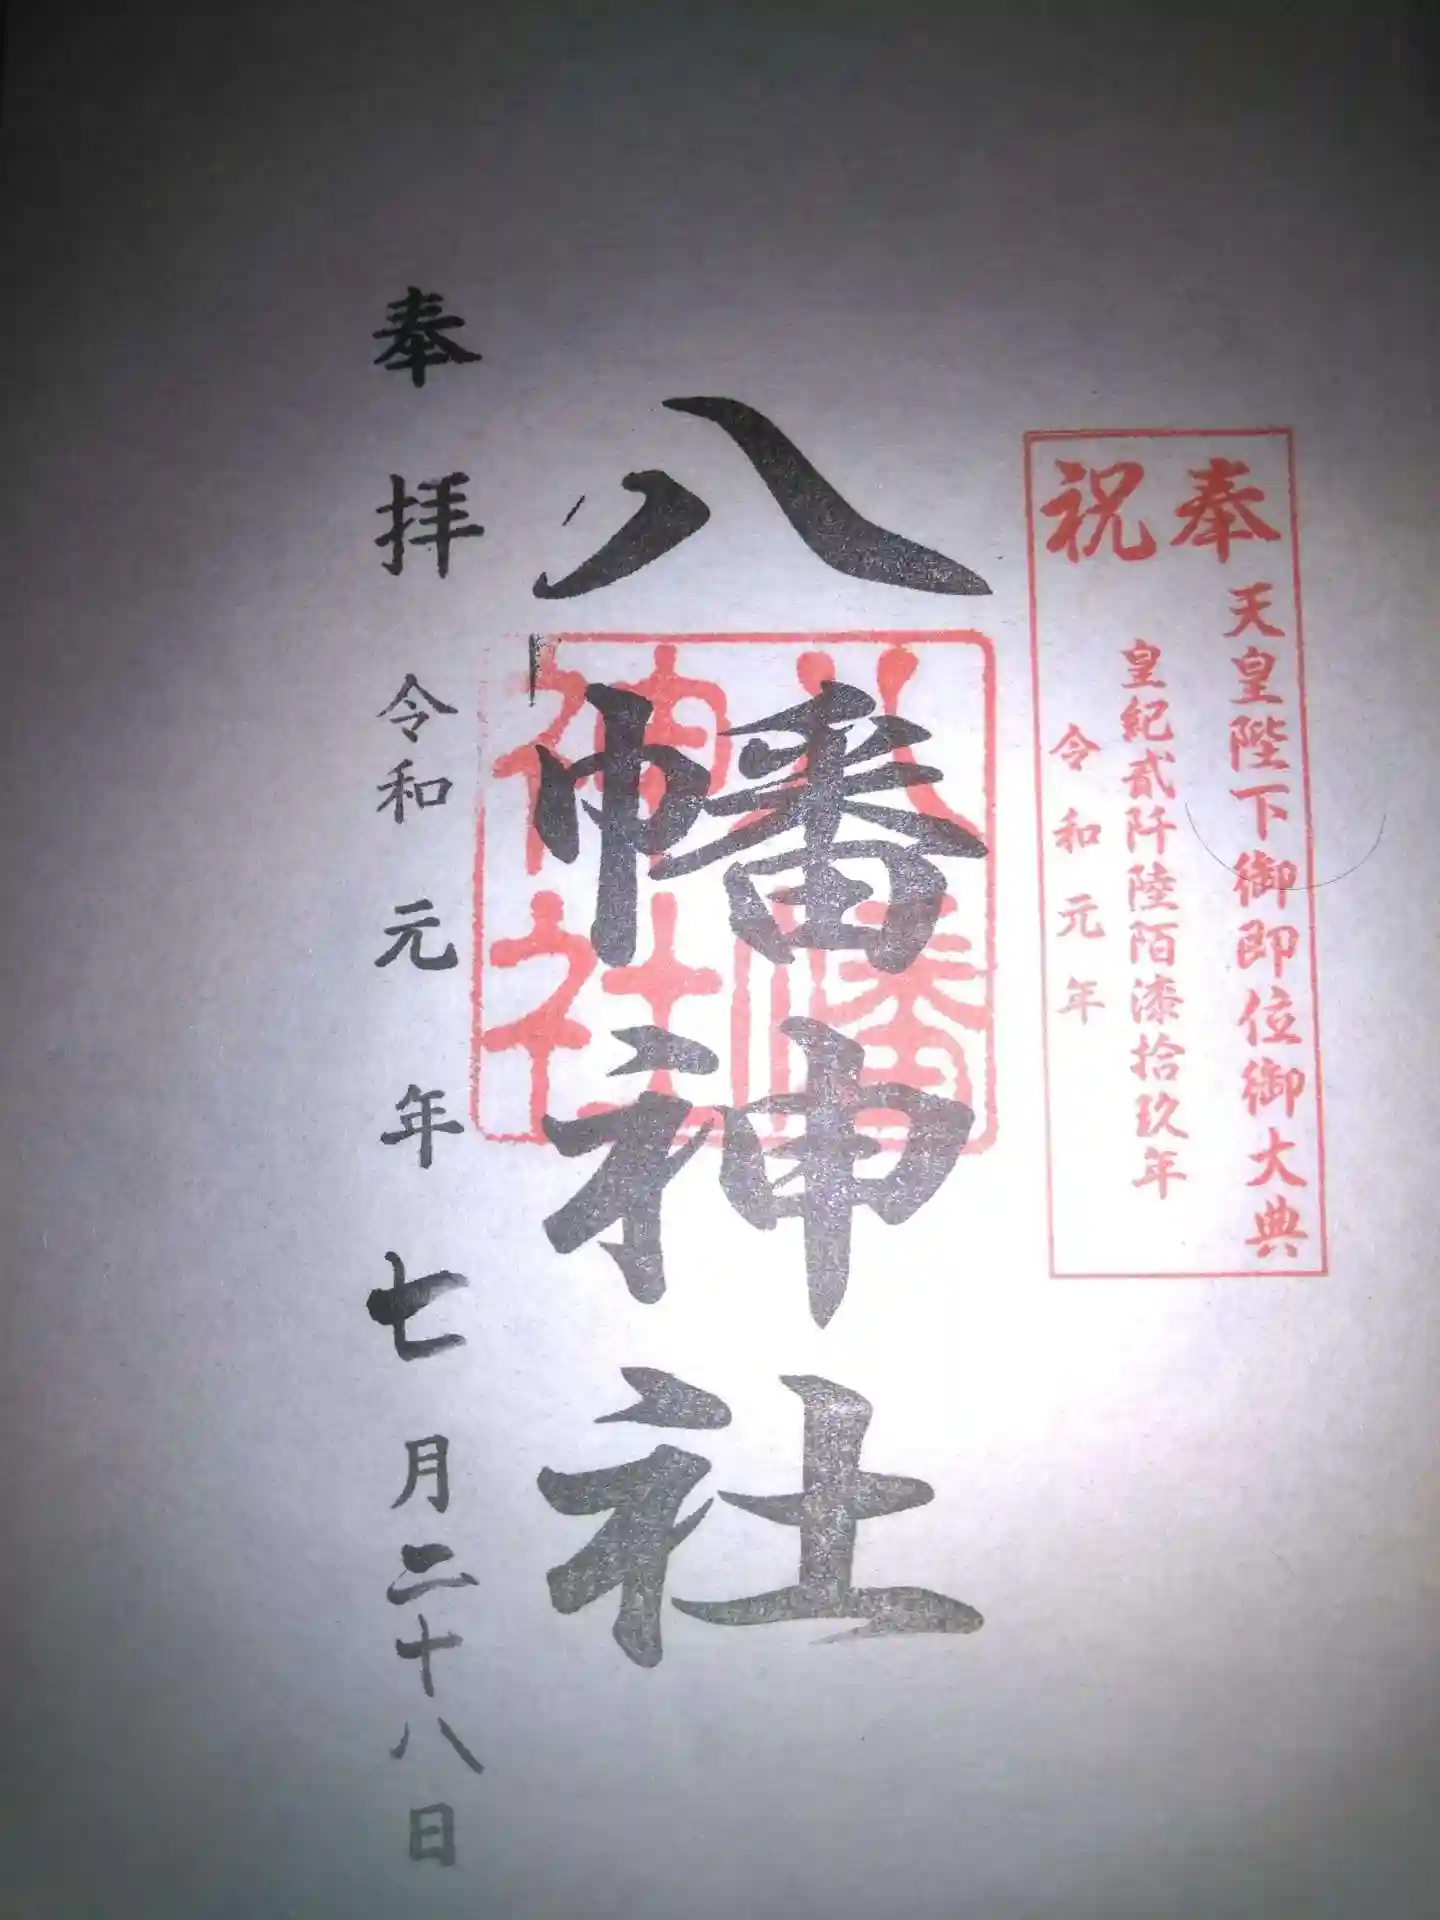 奉祝
天皇陛下御即位御大典
皇紀貳阡陸陌漆拾玖年
令和元年
八幡神社
八幡
神社
奉拝 令和元年七月二十八日